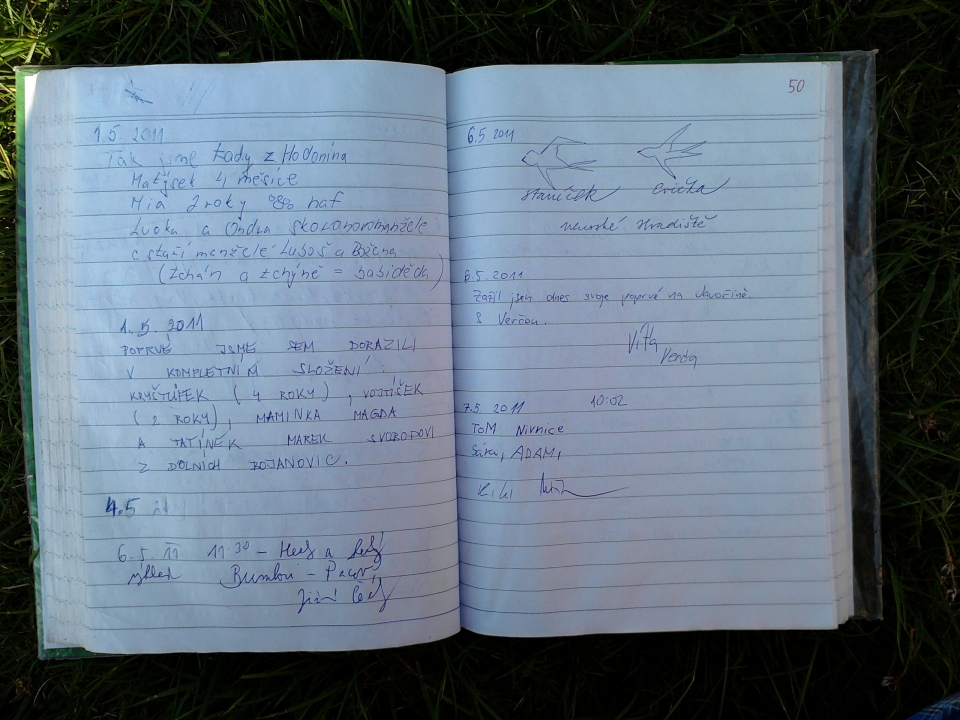 1.5. 2011
Tak jsme tady z Hodonína
Matýsek 4 měsíce
Mia 2 roky haf
Lucka a Ondra skoronovomanželé
a staří manželé Luboš a Božena
(tchán a tchýně = babiděda)
1.5. 2011
POPRVÉ JSME SEM DORAZILI
V KOMPLETNÍM SLOŽENÍ:
KRYŠTŮFEK (4 ROKY), VOJTÍŠEK
(2 ROKY), MAMINKA MAGDA
A TATÍNEK MAREK SVOBODOVI
Z DOLNÍCH BOJANOVIC.
4.5
6.5 11 11 30 - a
výhled
Jiří
50
6.5 2011
Staníček Evička
Hradiště
6.5. 2011
Zažil jsem dnes svoje poprvé na Javořině
S Verčou.
Víťa
Verča
7.5 2011 10:02
ToM Nivnice
Sára, ADAM,
Kiki